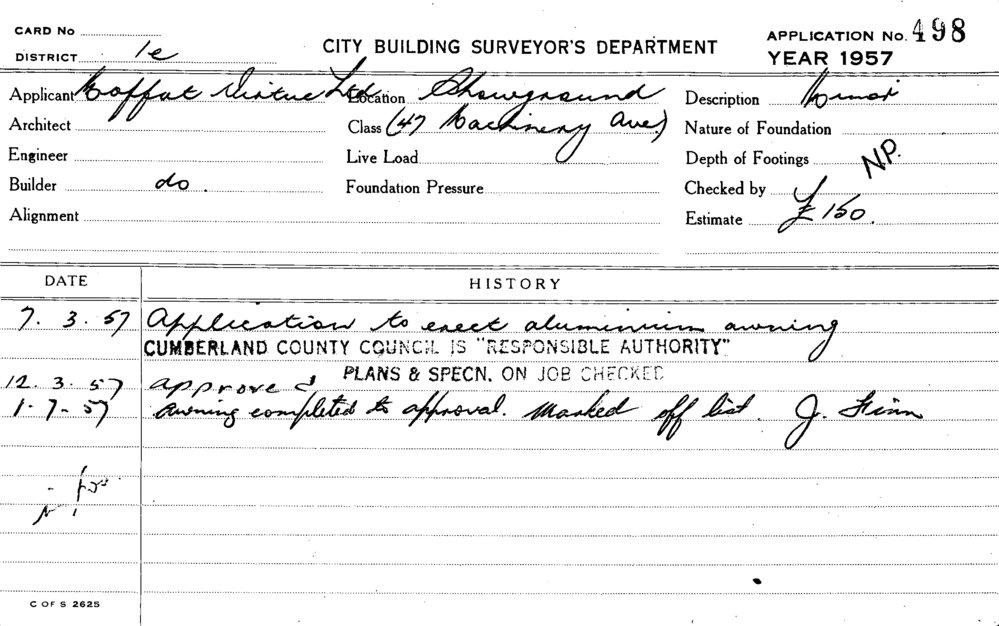 CARD No
DISTRICT 1e
CITY BUILDING SURVEYOR'S DEPARTMENT
APPLICATION No. 498
YEAR 1957
Applicant Moffat Virtue Ltd Location Showground Description Minor
Architect Class (47 Machinery Ave.) Nature of Foundation
Engineer Live Load Depth of Footings NP.
Builder do. Foundation Pressure Checked by
Alignment Estimate £150.
DATE HISTORY
7. 3. 57 Application to erect aluminium awning
CUMBERLAND COUNTY COUNCIL IS "RESPONSIBLE AUTHORITY"
PLANS & SPECN. ON JOB CHECKED
12. 3. 57 approved
1-7-57 awning completed to approval. Marked off list. J. Finn
C OF S 2625